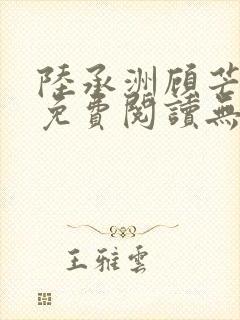 陸承洲顾芒
免費閱讀無
王雅雲